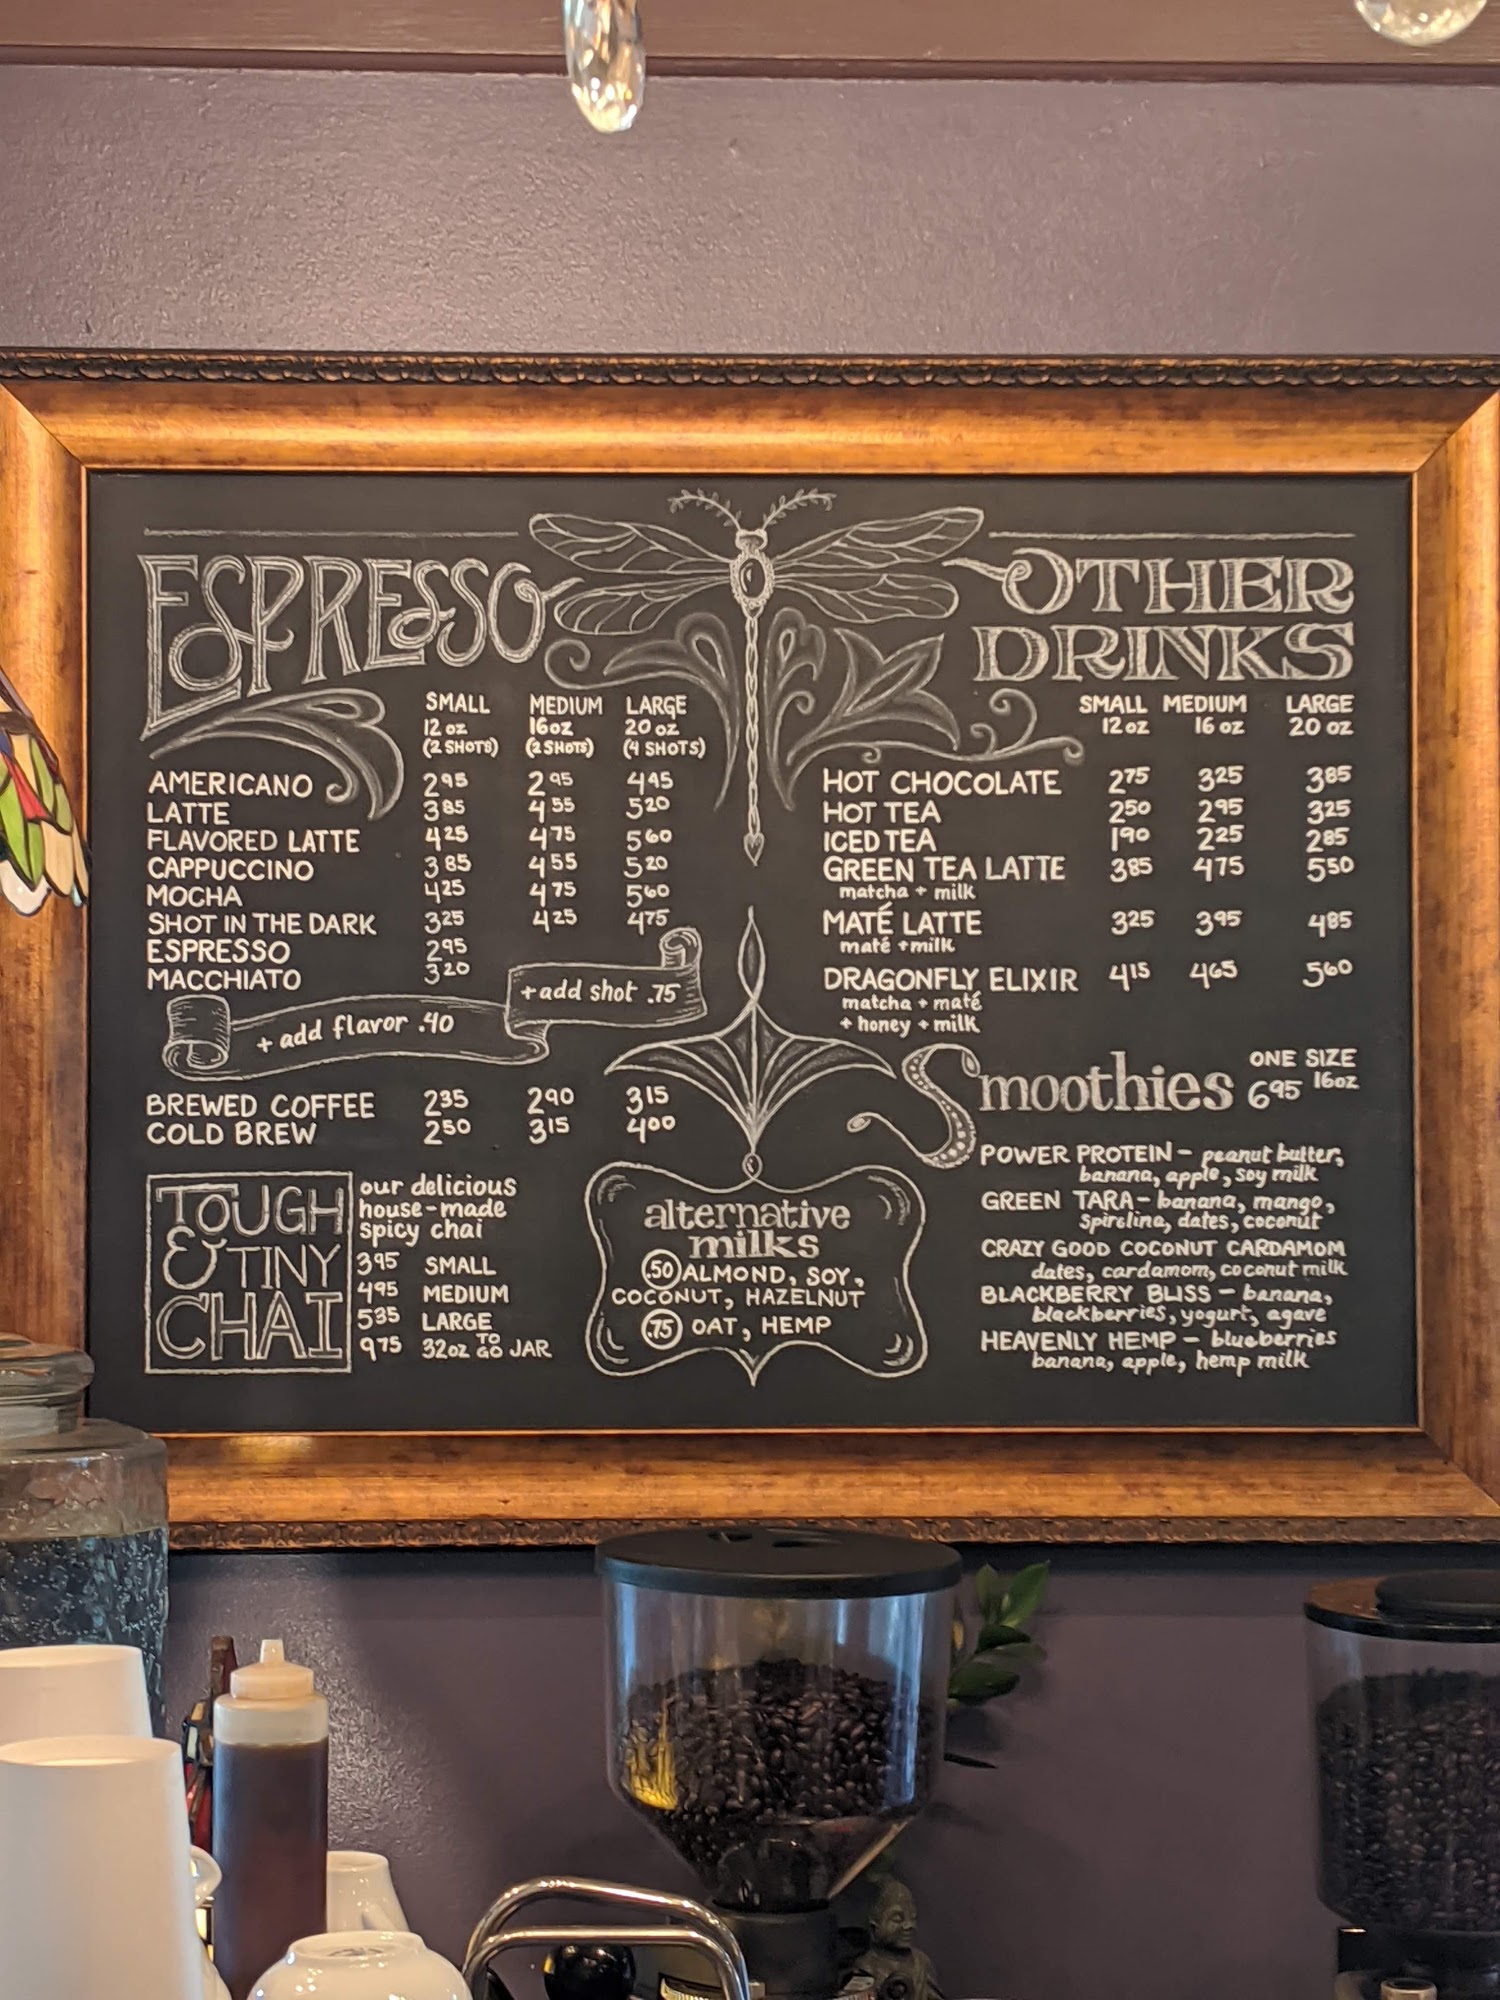 ESPRESSO
SMALL MEDIUM LARGE
12 oz 16oz 20 oz
(2 SHOTS) (2 SHOTS) (4 SHOTS)
AMERICANO 2.95 2.95 4.45
LATTE 3.85 4.55 5.20
FLAVORED LATTE 4.25 4.75 5.60
CAPPUCCINO 3.85 4.55 5.20
MOCHA 4.25 4.75 5.60
SHOT IN THE DARK 3.25 4.25 4.75
ESPRESSO 2.95
MACCHIATO 3.20
+ add flavor .40
+ add shot .75
BREWED COFFEE 2.35 2.90 3.15
COLD BREW 2.50 3.15 4.00
TOUGH
& TINY
CHAI
our delicious
house-made
spicy chai
3.95 SMALL
4.95 MEDIUM
5.35 LARGE
9.75 32oz TO GO JAR
alternative
milks
.50 ALMOND, SOY,
COCONUT, HAZELNUT
.75 OAT, HEMP
OTHER
DRINKS
SMALL MEDIUM LARGE
12 oz 16 oz 20 oz
HOT CHOCOLATE 2.75 3.25 3.85
HOT TEA 2.50 2.95 3.25
ICED TEA 1.90 2.25 2.85
GREEN TEA LATTE 3.85 4.75 5.50
matcha + milk
MATÉ LATTE 3.25 3.95 4.85
maté + milk
DRAGONFLY ELIXIR 4.15 4.65 5.60
matcha + maté
+ honey + milk
Smoothies ONE SIZE
6.95 16oz
POWER PROTEIN - peanut butter,
banana, apple, soy milk
GREEN TARA - banana, mango,
spirslina, dates, coconut
CRAZY GOOD COCONUT CARDAMOM
dates, cardamom, coconut milk
BLACKBERRY BLISS - banana,
blackberries, yogurt, agave
HEAVENLY HEMP - blueberries
banana, apple, hemp milk